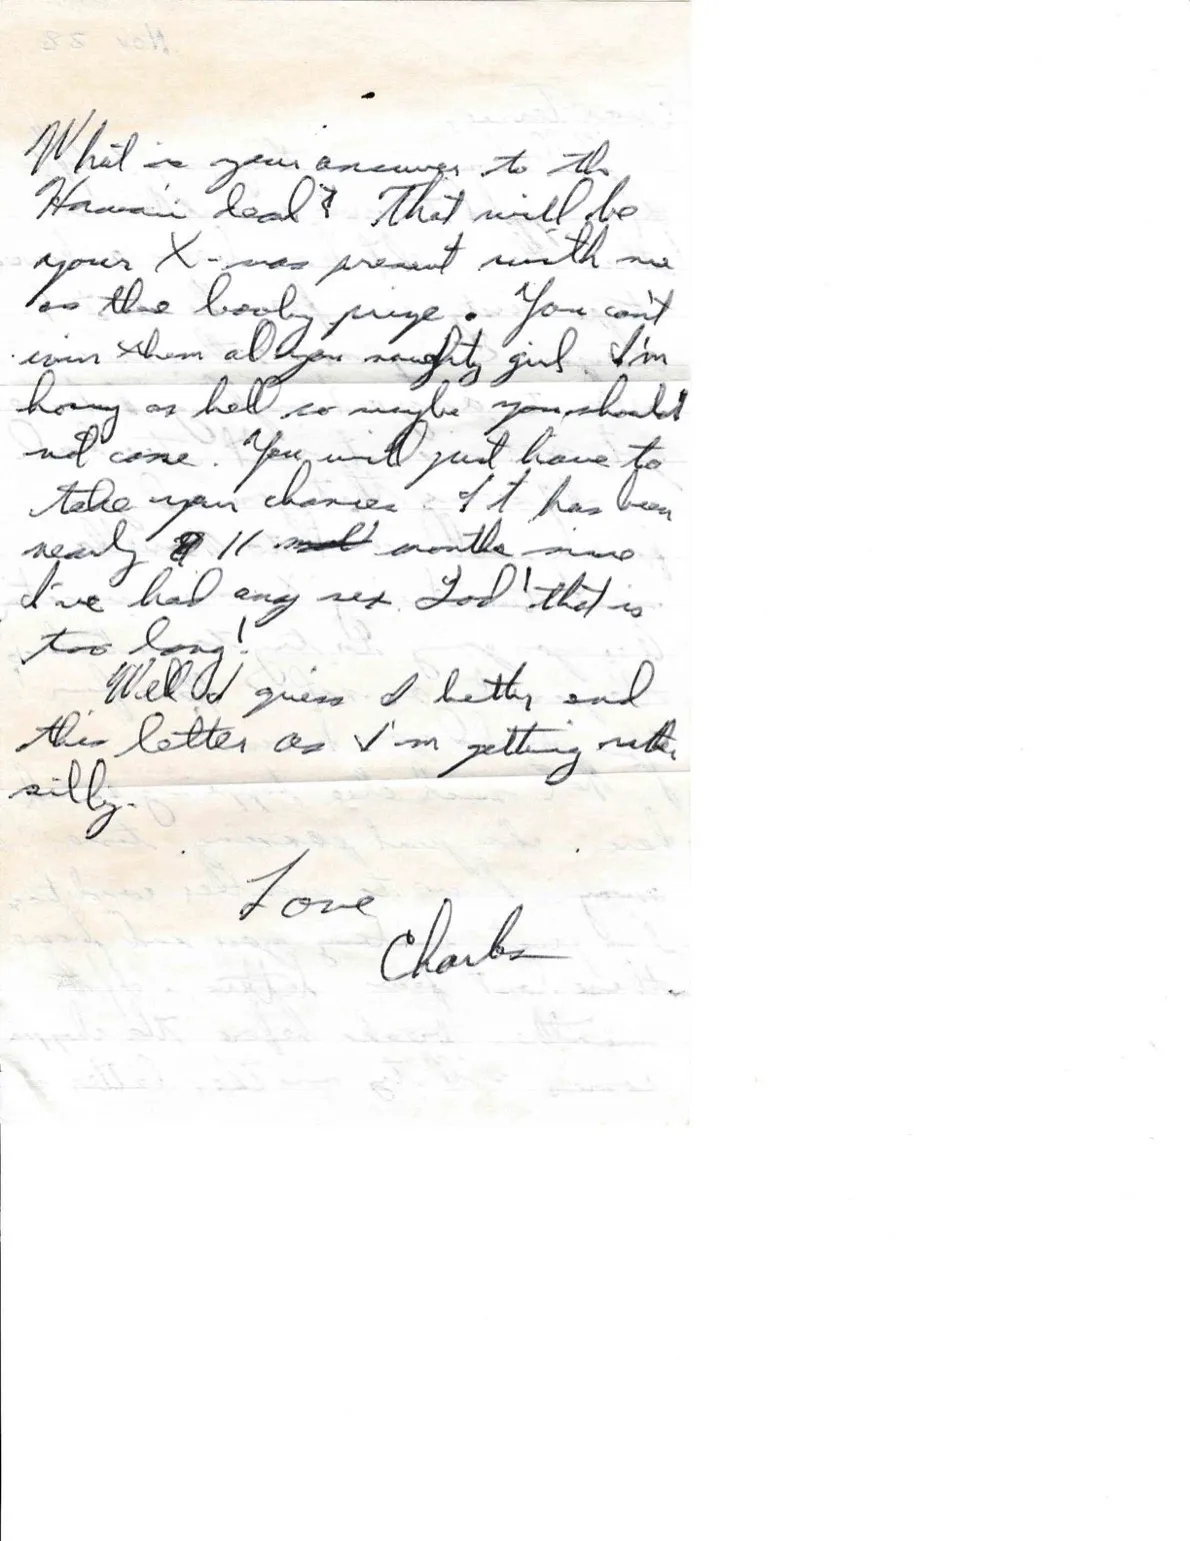 What is your answer to the
Hawaii deal? That will be
your X-mas present with me
as the booby prize. You can't
win them all you naughty girl. I'm
horny as hell so maybe you should
not come. You will just have to
take your chances. It has been
nearly 11 months since
I've had any sex. God! that is
too long!
Well I guess I better end
this letter as I'm getting rather
silly.
Love
Charles